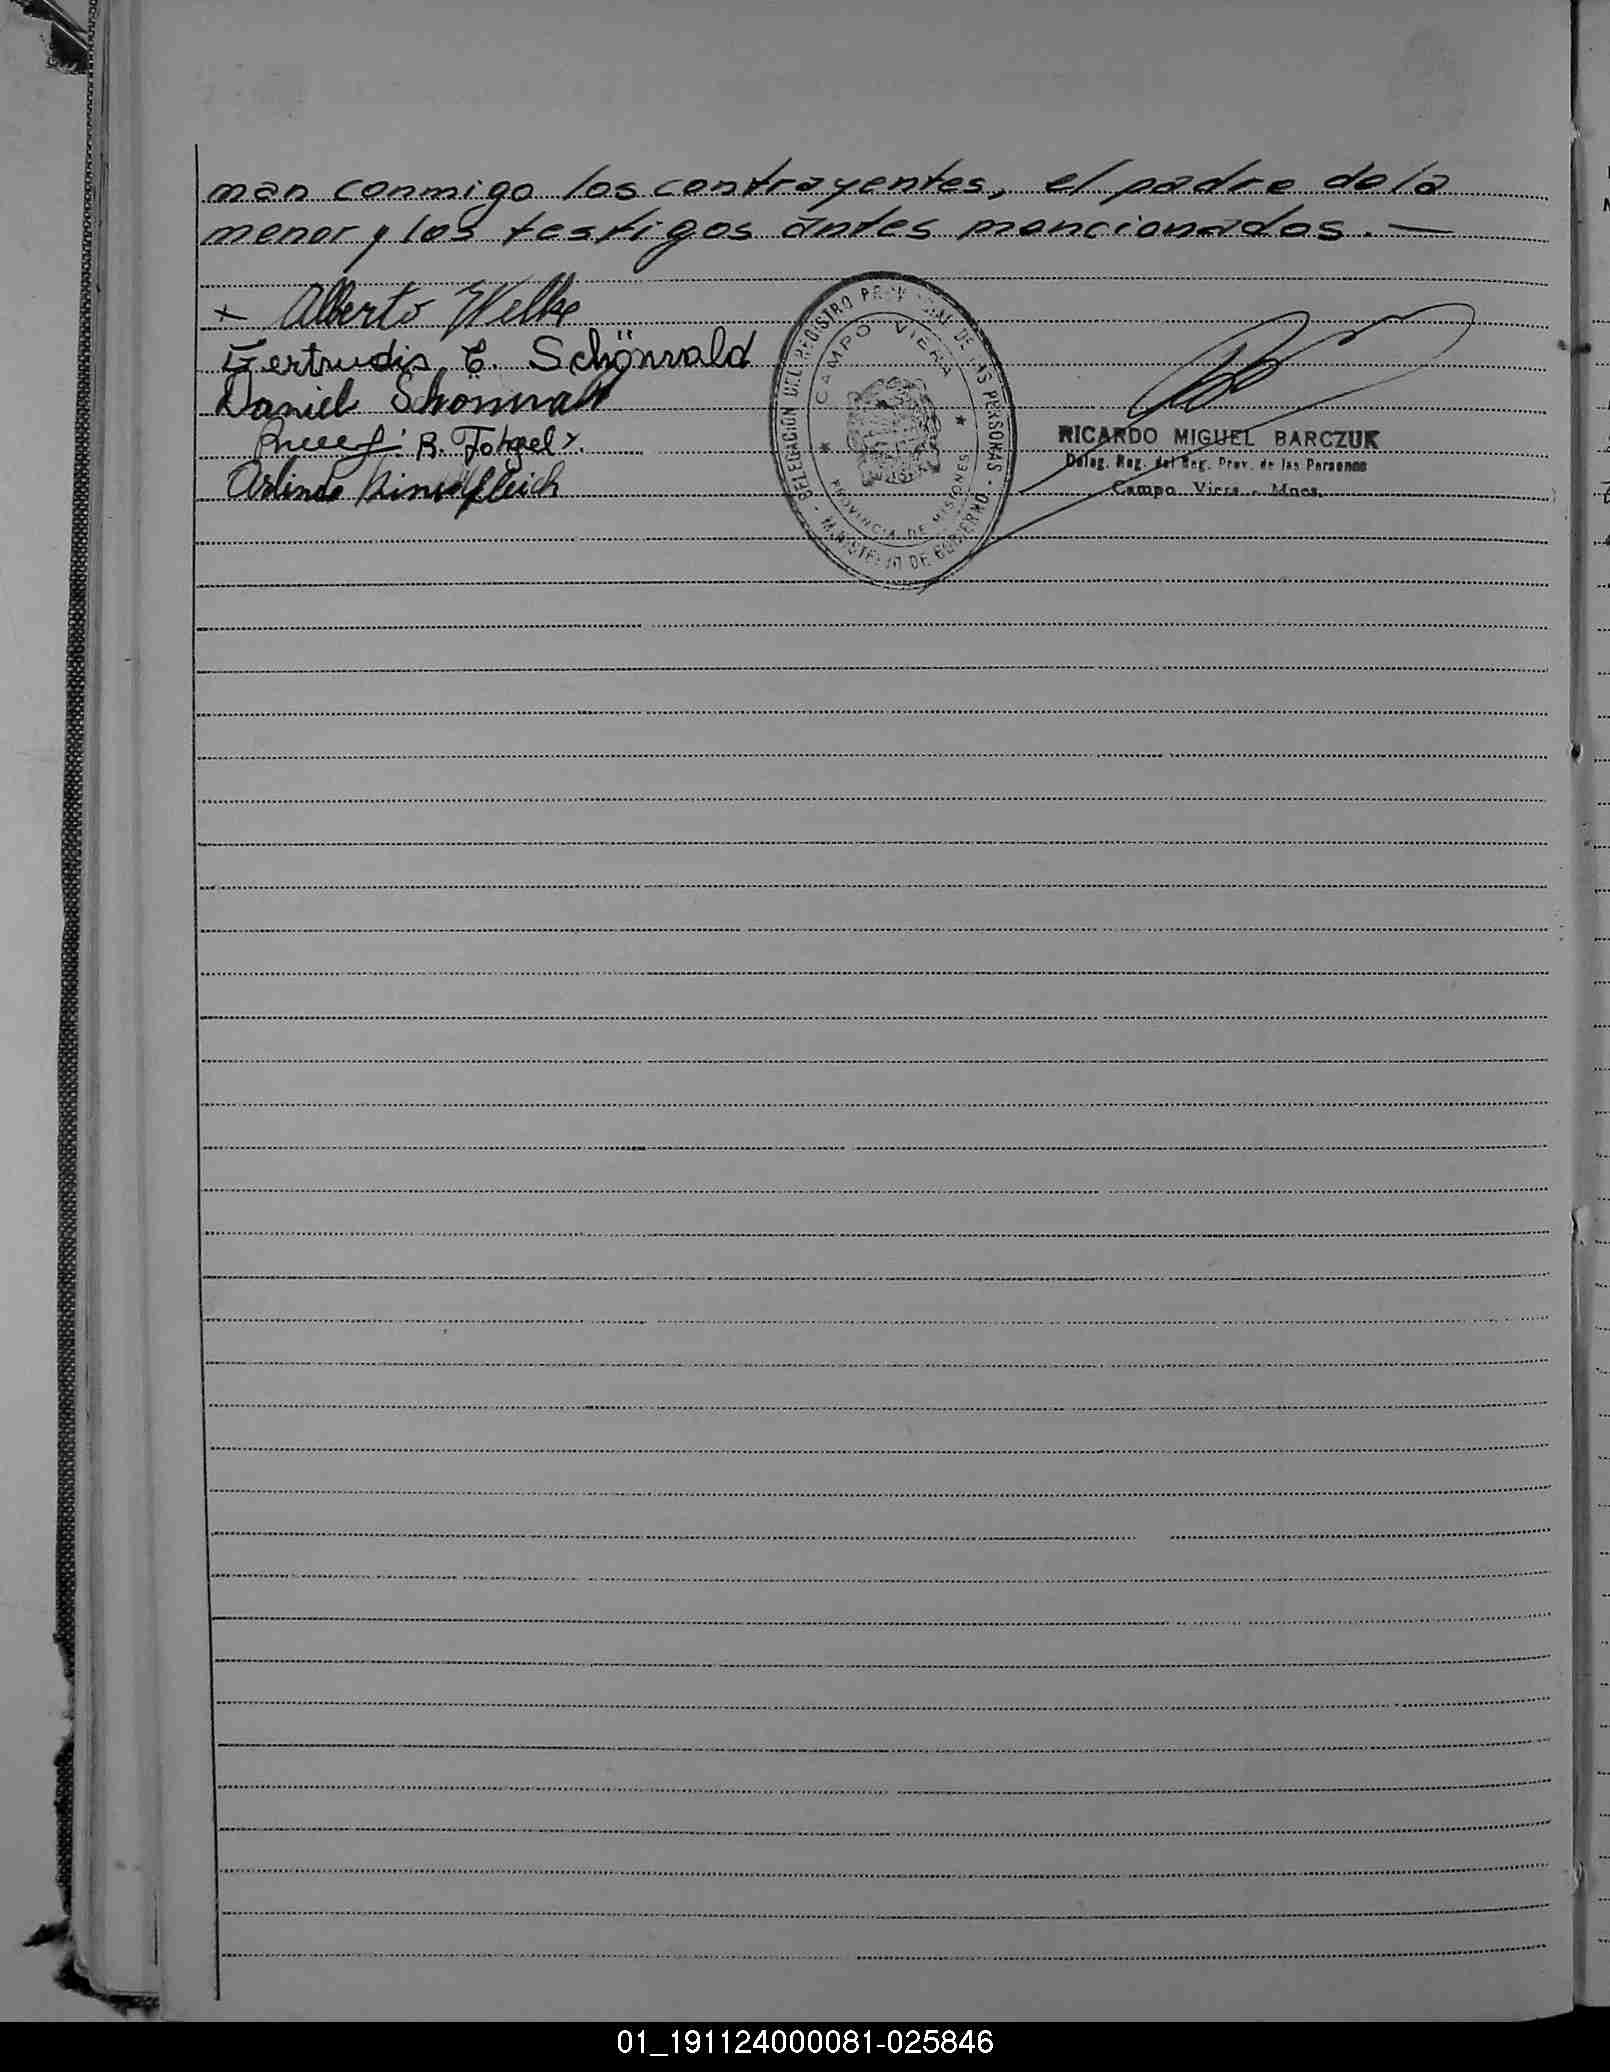 man conmigo los contrayentes, el padre de la
menor y los testigos antes mencionados. —
+ Alberto Welke
Gertrudis E. Schönwald
Daniel Schönwald
B. Fobgel
Arlindo
DELEGACION DEL REGISTRO PROVINCIAL DE LAS PERSONAS - MINISTERIO DE GOBIERNO -
CAMPO VIERA
PROVINCIA DE MISIONES
RICARDO MIGUEL BARCZUK
Deleg. Reg. del Reg. Prov. de las Personas
Campo Viera - Mnes.
01_191124000081-025846